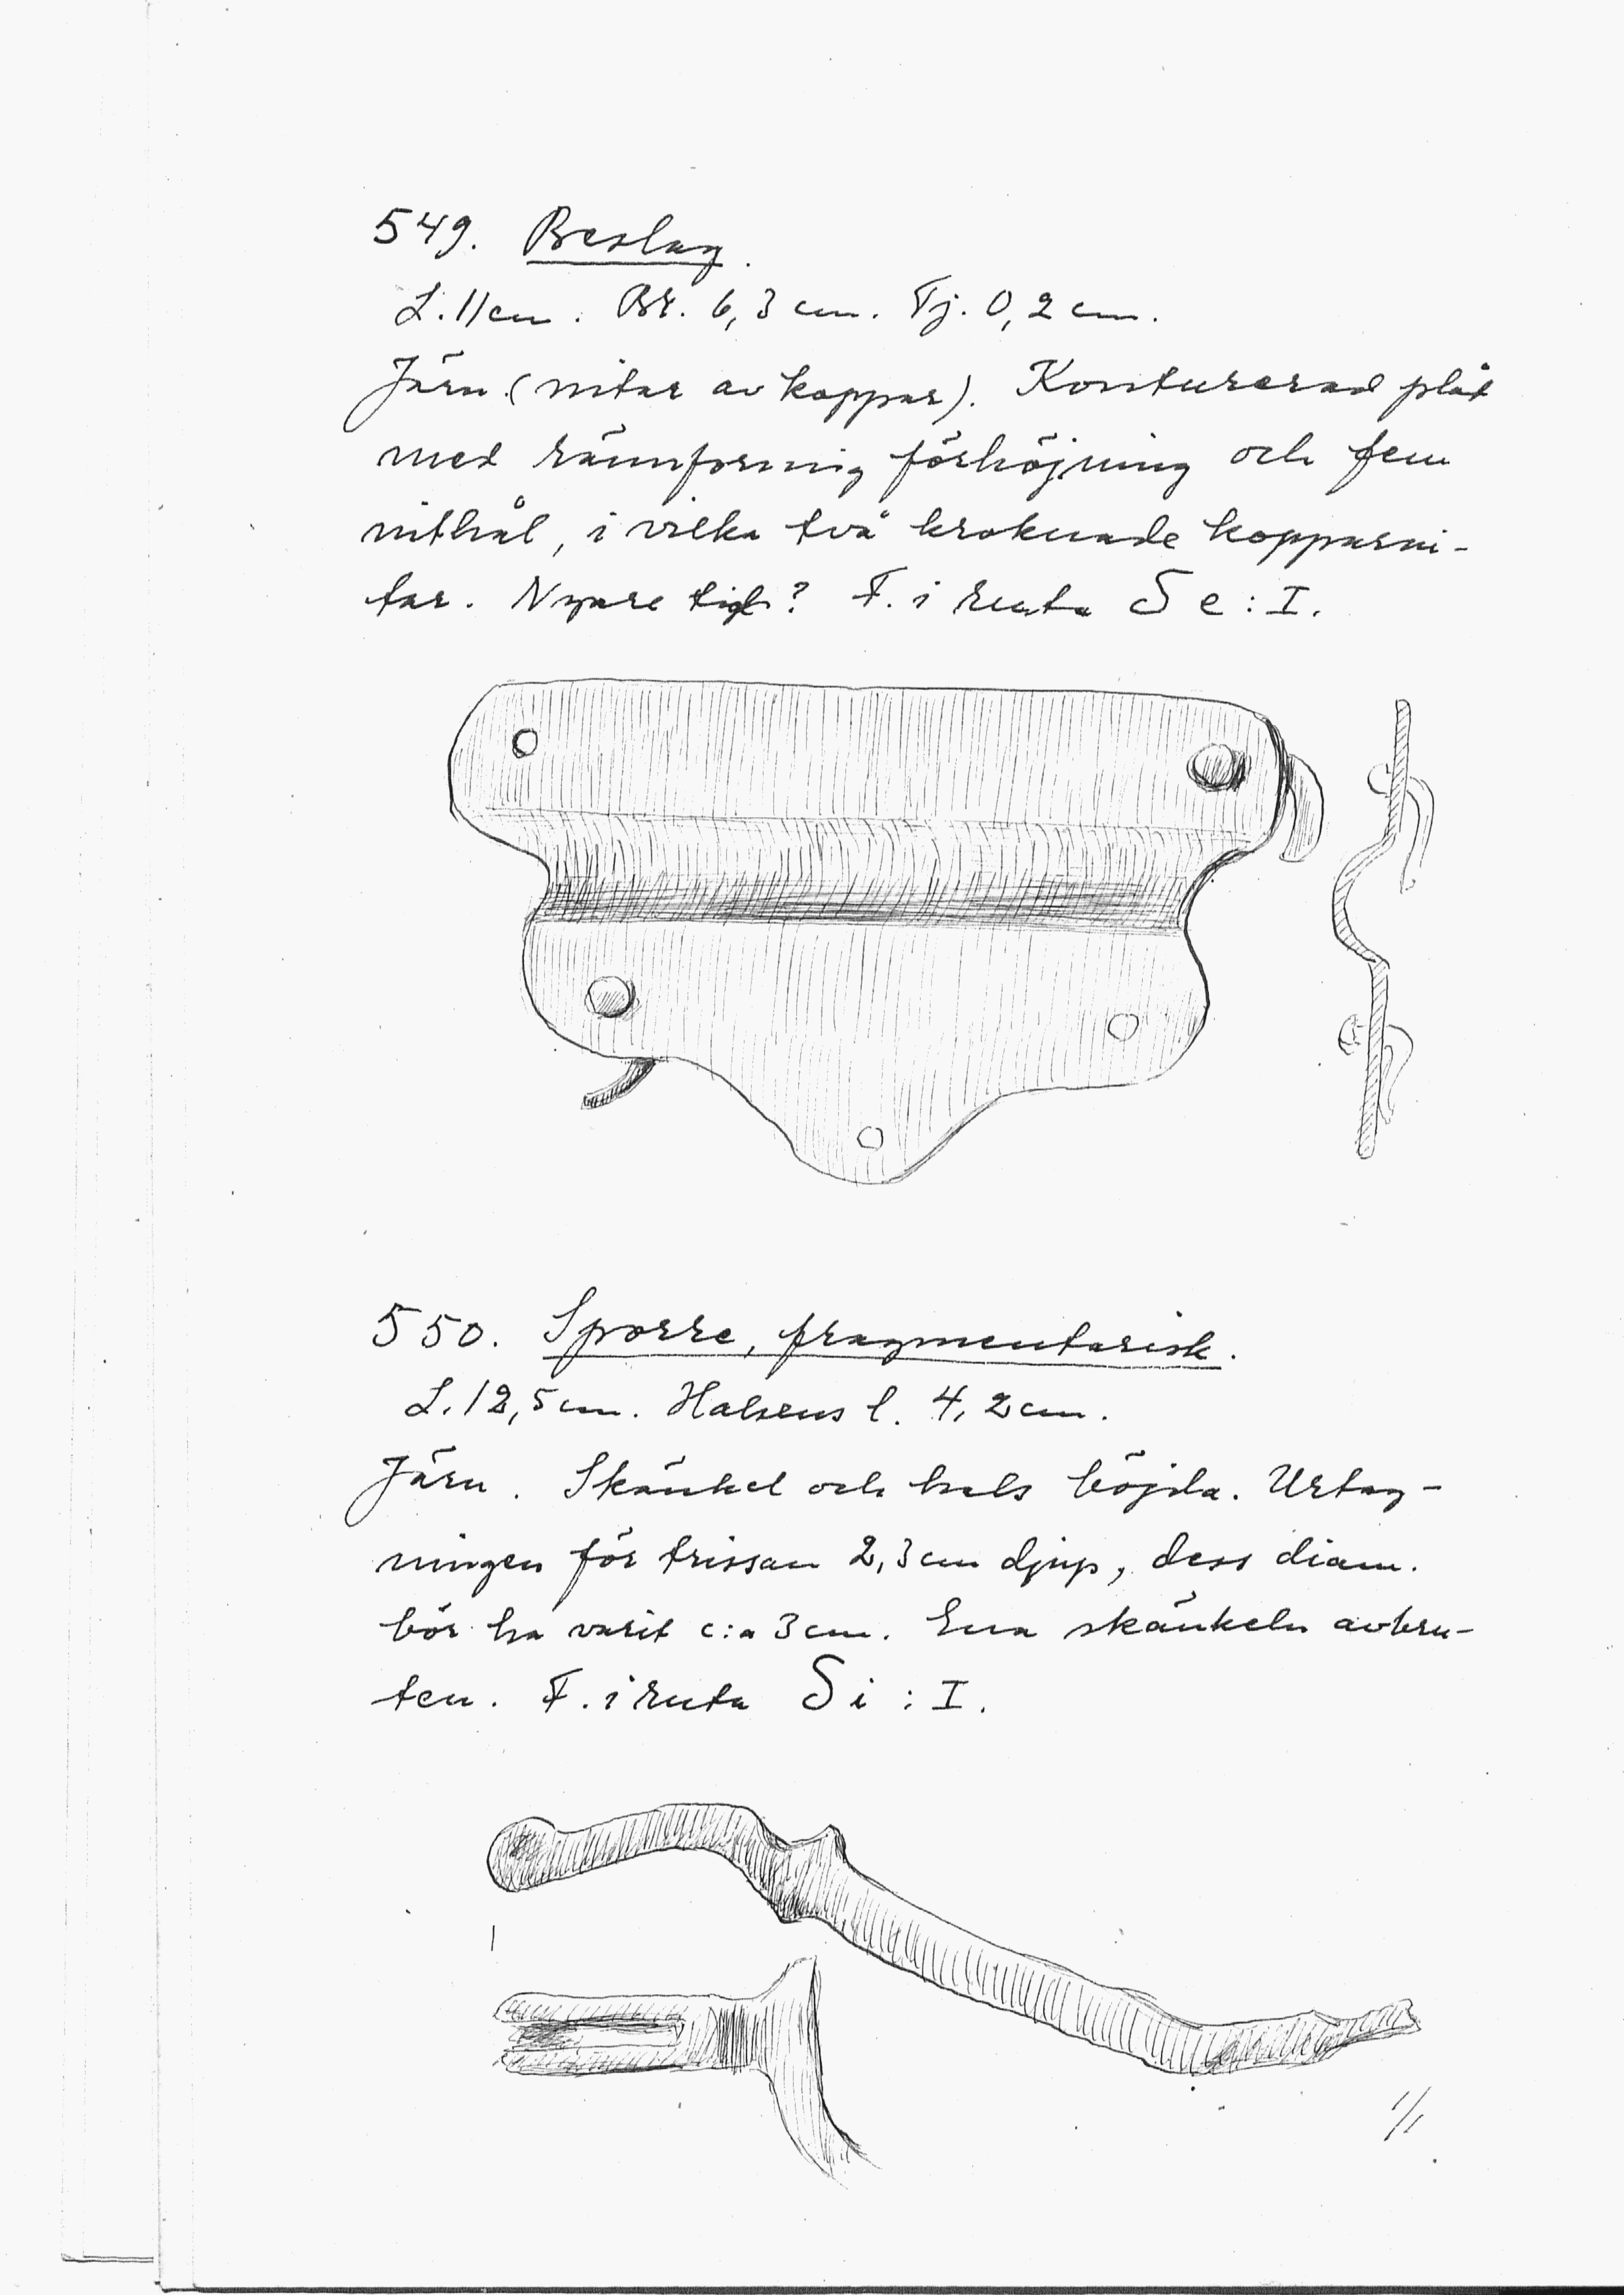 549. Beslag.
L. 11 cm. Br. 6,3 cm. Tj. 0,2 cm.
Järn (nitar av koppar). Konturerad plåt
med rännformig förhöjning och fem
nithål, i vilka två kroknade kopparni-
tar. Nyare tid? F. i ruta S e : I.
550. Sporre, fragmentarisk.
L. 12,5 cm. Halsens l. 4,2 cm.
Järn. Skänkel och hals böjda. Urtag-
ningen för trissan 2,3 cm djup, dess diam.
bör ha varit c:a 3 cm. Ena skänkeln avbru-
ten. F. i ruta S i : I.
1/1